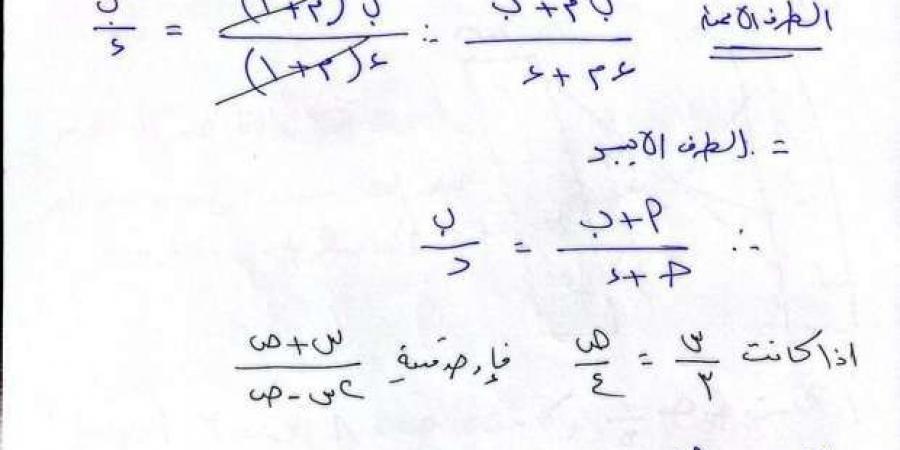 الطرف الايمن ب م + ب / ء م + ء ∴ ب (م + ١) / ء (م + ١) = ب / ء
= الطرف الايسر
∴ م + ب / حـ + ء = ب / د
اذا كانت س / ٣ = ص / ٤ فإوجد قيمة س + ص / ٢س - ص